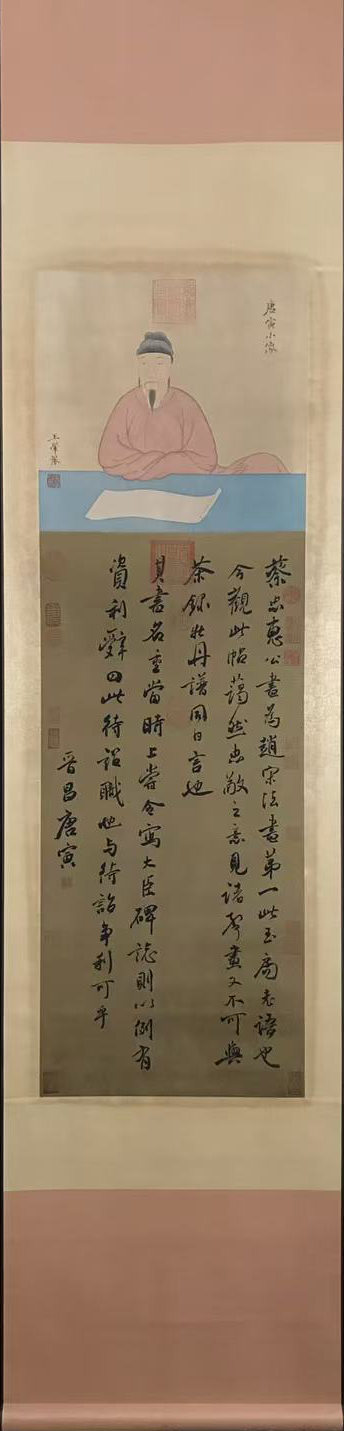 唐寅小像
蔡忠惠公書為趙宋法書第一此玉局老語也
今觀此帖藹然忠敬之意見諸聲畫又不可與
茶錄牡丹譜同日言也
其書名重當時上嘗令寫大臣碑誌則以例有
資利辭曰此待詔職也与待詔争利可乎
晉昌唐寅